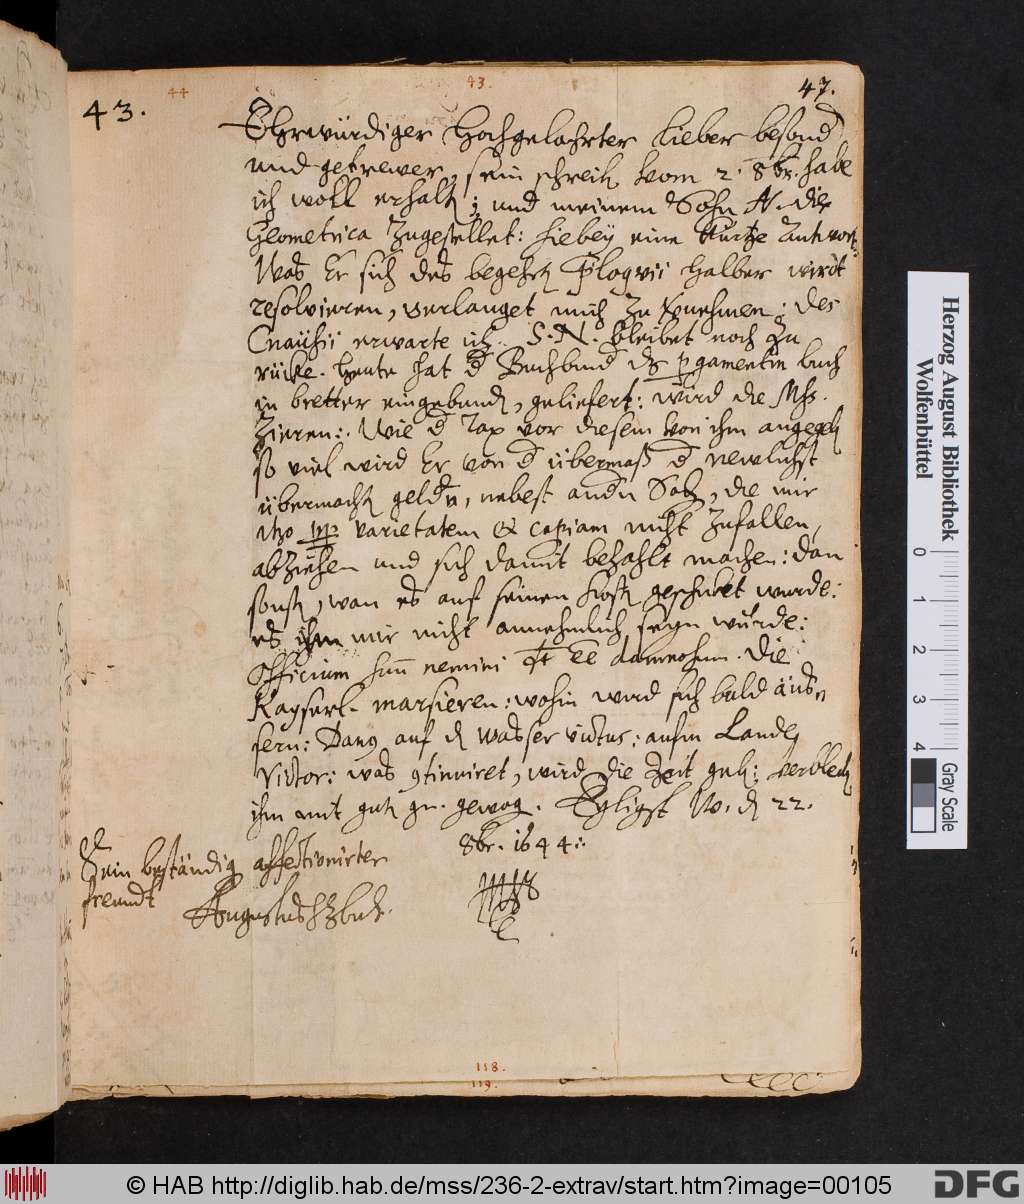 43.
44
43.
43.
Ehrwürdiger Hochgelahrter lieber besond
und getrewer, sein schreib. vom 2. 8br. habe
ich woll erhalt; und meinem Sohn A. die
Geometrica zugestellet: hiebey eine kurtze Antwort.
Was Er sich des begehrt halber wirdt
resolvieren, verlanget mich zu vernehmen: des
Cnaüsii erwarte ich. S. N. bleibet noch zu
rücke. Heute hat d Buchbind dz pgamentin buch
in bretter eingebund, geliefert: wird die Mss.
Zieren: Wie d Tax vor diesem von ihm angegeb
so viel wird Er von d übermaß d newlichst
übermacht geld, nebest andn Sach, die mir
itzo varietatem & copiam nicht zufallen,
abziehen und sich damit bezahlt machen: dan
sonst, wan es auf seinen kost geschicket wurde:
es mir nicht annehmlich seyn würde:
Officium suu nemini. Die
Kayserl. marsieren: wohin wird sich bald äus-
sern: Danus auf d Wasser victus: aufm Lande
Victor: was 9tinuiret, wird die Zeit geb: verbleib
ihm mit gut gn. gewog. Eyligst W. d 22.
8br. 1644.
Sein beständig affectionirter
freundt
Augustus HzBuL.
118.
119.
Herzog August Bibliothek
Wolfenbüttel
0 1 2 3 4
Gray Scale
© HAB http://diglib.hab.de/mss/236-2-extrav/start.htm?image=00105
DFG